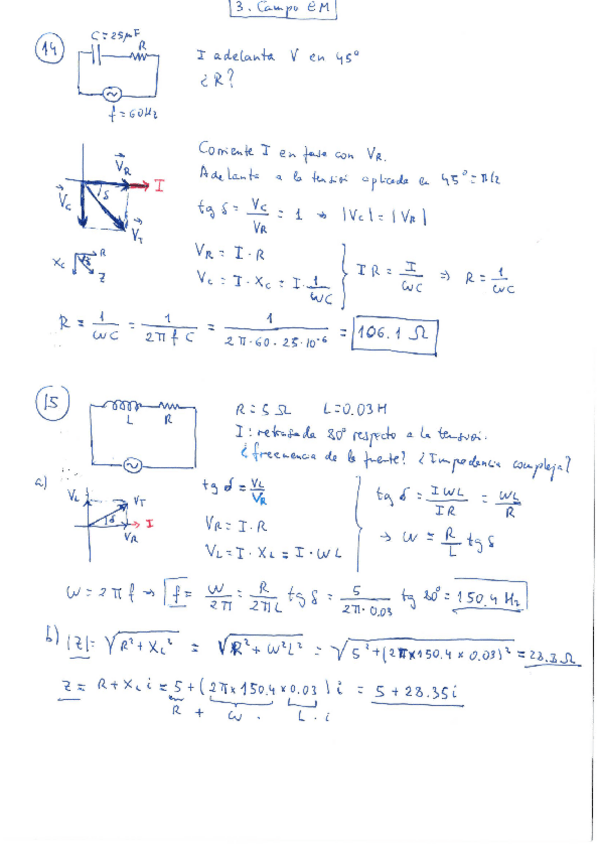 3. Campo EM
14
C=25µF
R
f=60Hz
I adelanta V en 45°
¿R?
Corriente I en fase con VR.
Adelanta a la tensión aplicada en 45°=π/2
VR
I
δ
VC
VT
tg δ = VC/VR = 1 → |VC|=|VR|
VR = I·R
VC = I·XC = I·1/ωC
IR = I/ωC ⇒ R = 1/ωC
R
XC
Z
R = 1/ωC = 1/2πfC = 1/2π·60·25·10^-6 = 106.1 Ω
15
L R
R=5Ω L=0.03H
I: retrasada 80° respecto a la tensión.
¿frecuencia de la fuente? ¿Impedancia compleja?
a)
VL
VT
δ
I
VR
tg δ = VL/VR
VR = I·R
VL = I·XL = I·ωL
tg δ = IωL/IR = ωL/R
→ ω = R/L tg δ
ω = 2πf → f = ω/2π = R/2πL tg δ = 5/2π·0.03 tg 80° = 150.4 Hz
b) |Z| = √R²+XL² = √R²+ω²L² = √5²+(2π×150.4×0.03)² = 28.8Ω
Z = R+XL i = 5+(2π×150.4×0.03)i = 5+28.35i
R + ω · L · i